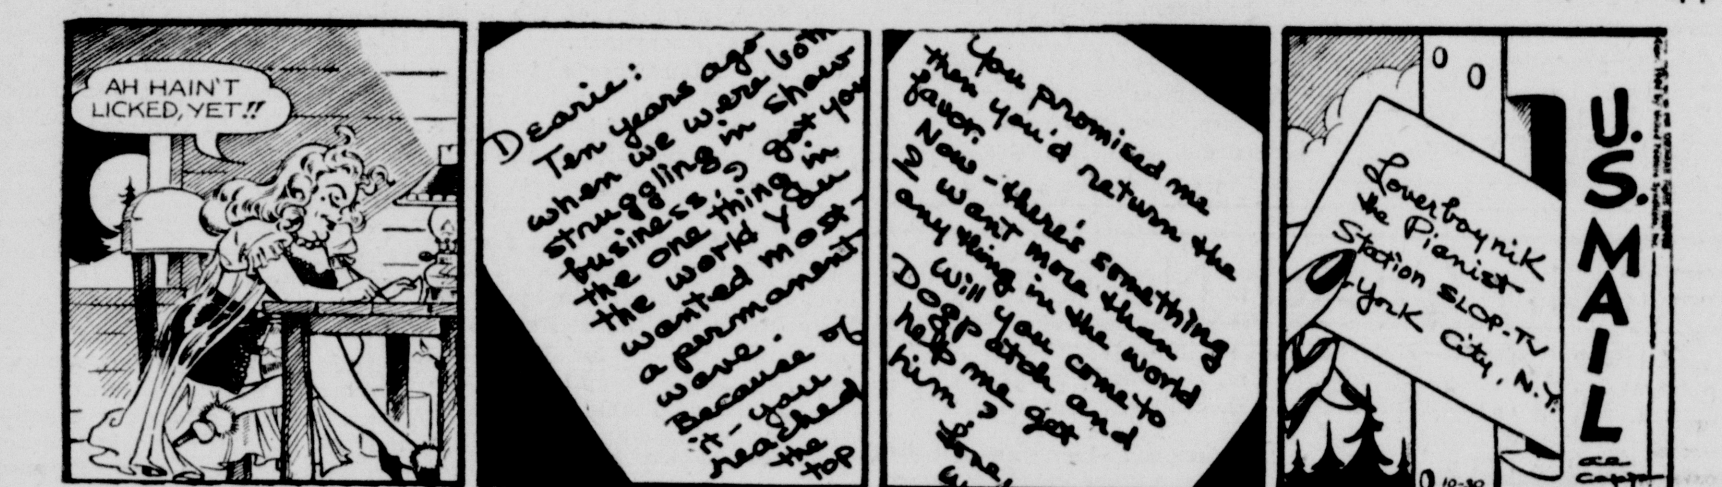 AH HAIN'T
LICKED, YET!!
Dearie:
Ten years ago
when we were both
struggling in show
business, I got you
the one thing in
the world you
wanted most-
a permanent
wave.
Because of
it-you
reached
the
top
You promised me
then you'd return the
favor.
Now-there's something
I want more than
anything in the world
Will you come to
Dogpatch and
help me get
him?
Love,
Loverboynik
the Pianist
Station SLOP-TV
York City, N.Y.
U.S. MAIL
AL
CAPP
10-30